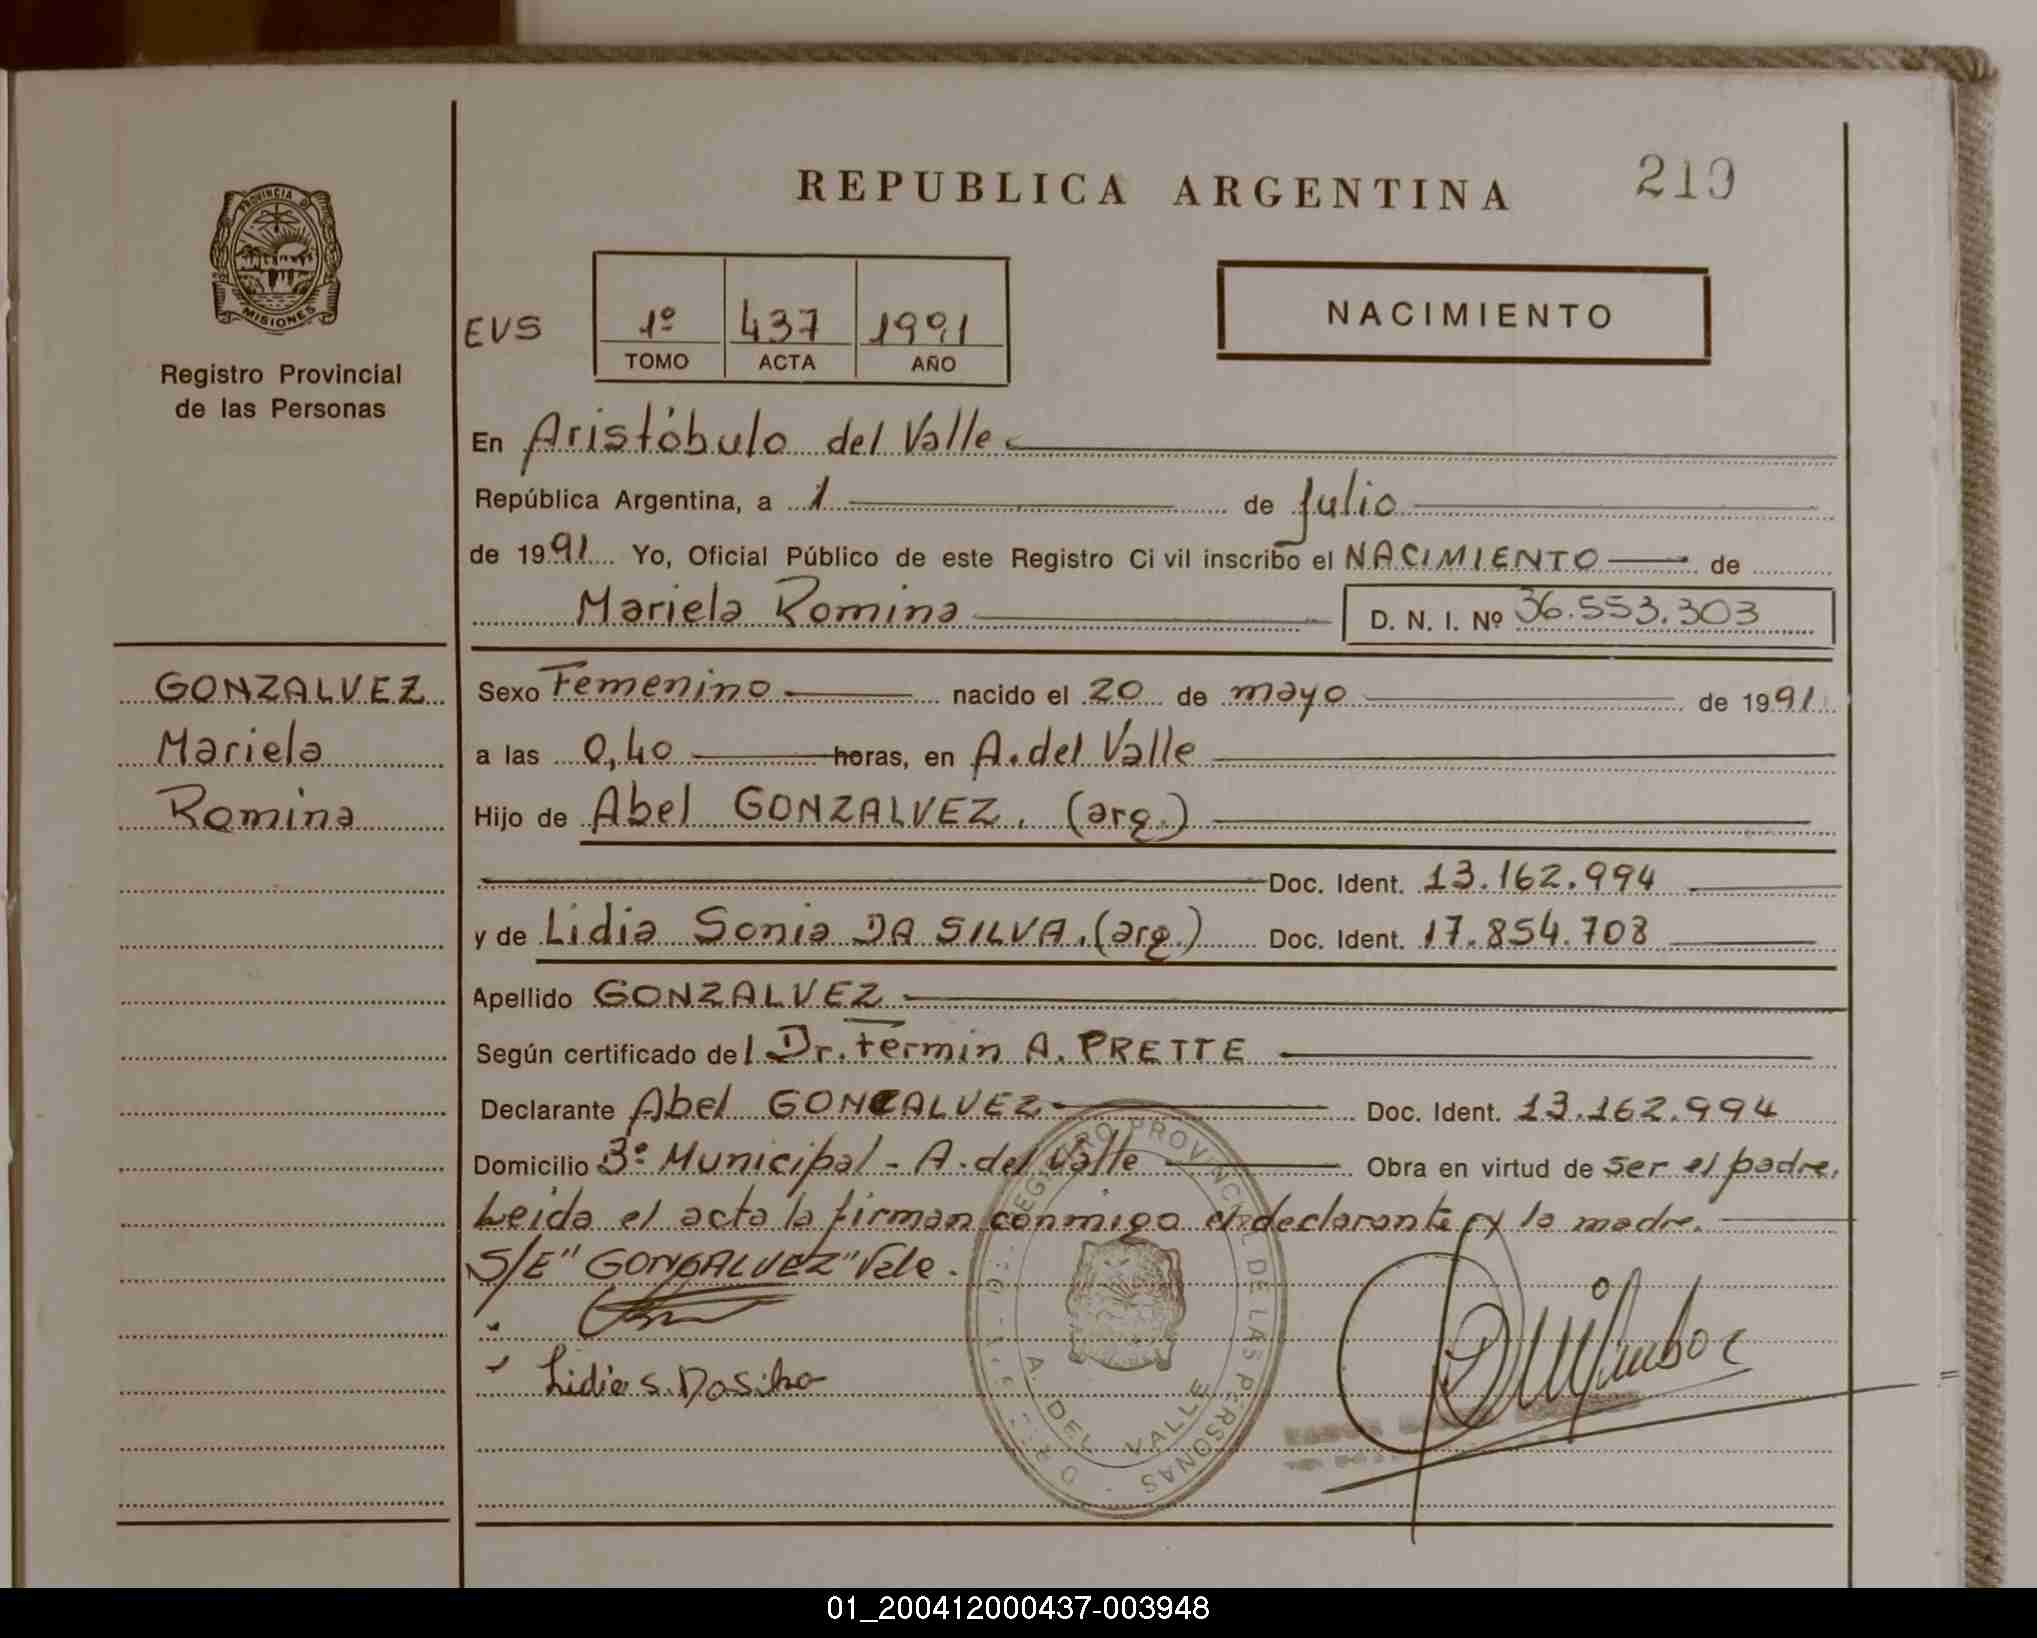 REPUBLICA ARGENTINA
219
PROVINCIA DE
MISIONES
Registro Provincial
de las Personas
NACIMIENTO
EVS
1º 437 1991
TOMO ACTA AÑO
En Aristóbulo del Valle
República Argentina, a 1 de Julio
de 1991 Yo, Oficial Público de este Registro Ci vil inscribo el NACIMIENTO de
Mariela Romina D. N. I. Nº 36.553.303
GONZALVEZ
Mariela
Romina
Sexo Femenino nacido el 20 de mayo de 1991
a las 0,40 horas, en A. del Valle
Hijo de Abel GONZALVEZ. (arg.)
Doc. Ident. 13.162.994
y de Lidia Sonia DA SILVA. (arg.) Doc. Ident. 17.854.708
Apellido GONZALVEZ
Según certificado del Dr. Fermin A. PRETTE
Declarante Abel GONZALVEZ Doc. Ident. 13.162.994
Domicilio Bº Municipal - A. del Valle Obra en virtud de ser el padre.
Leida el acta la firman conmigo el declarante y la madre.
S/E "GONZALVEZ" Vale.
Lidia S. Da Silva
REGISTRO PROVINCIAL DE LAS PERSONAS
A. DEL VALLE
01_200412000437-003948